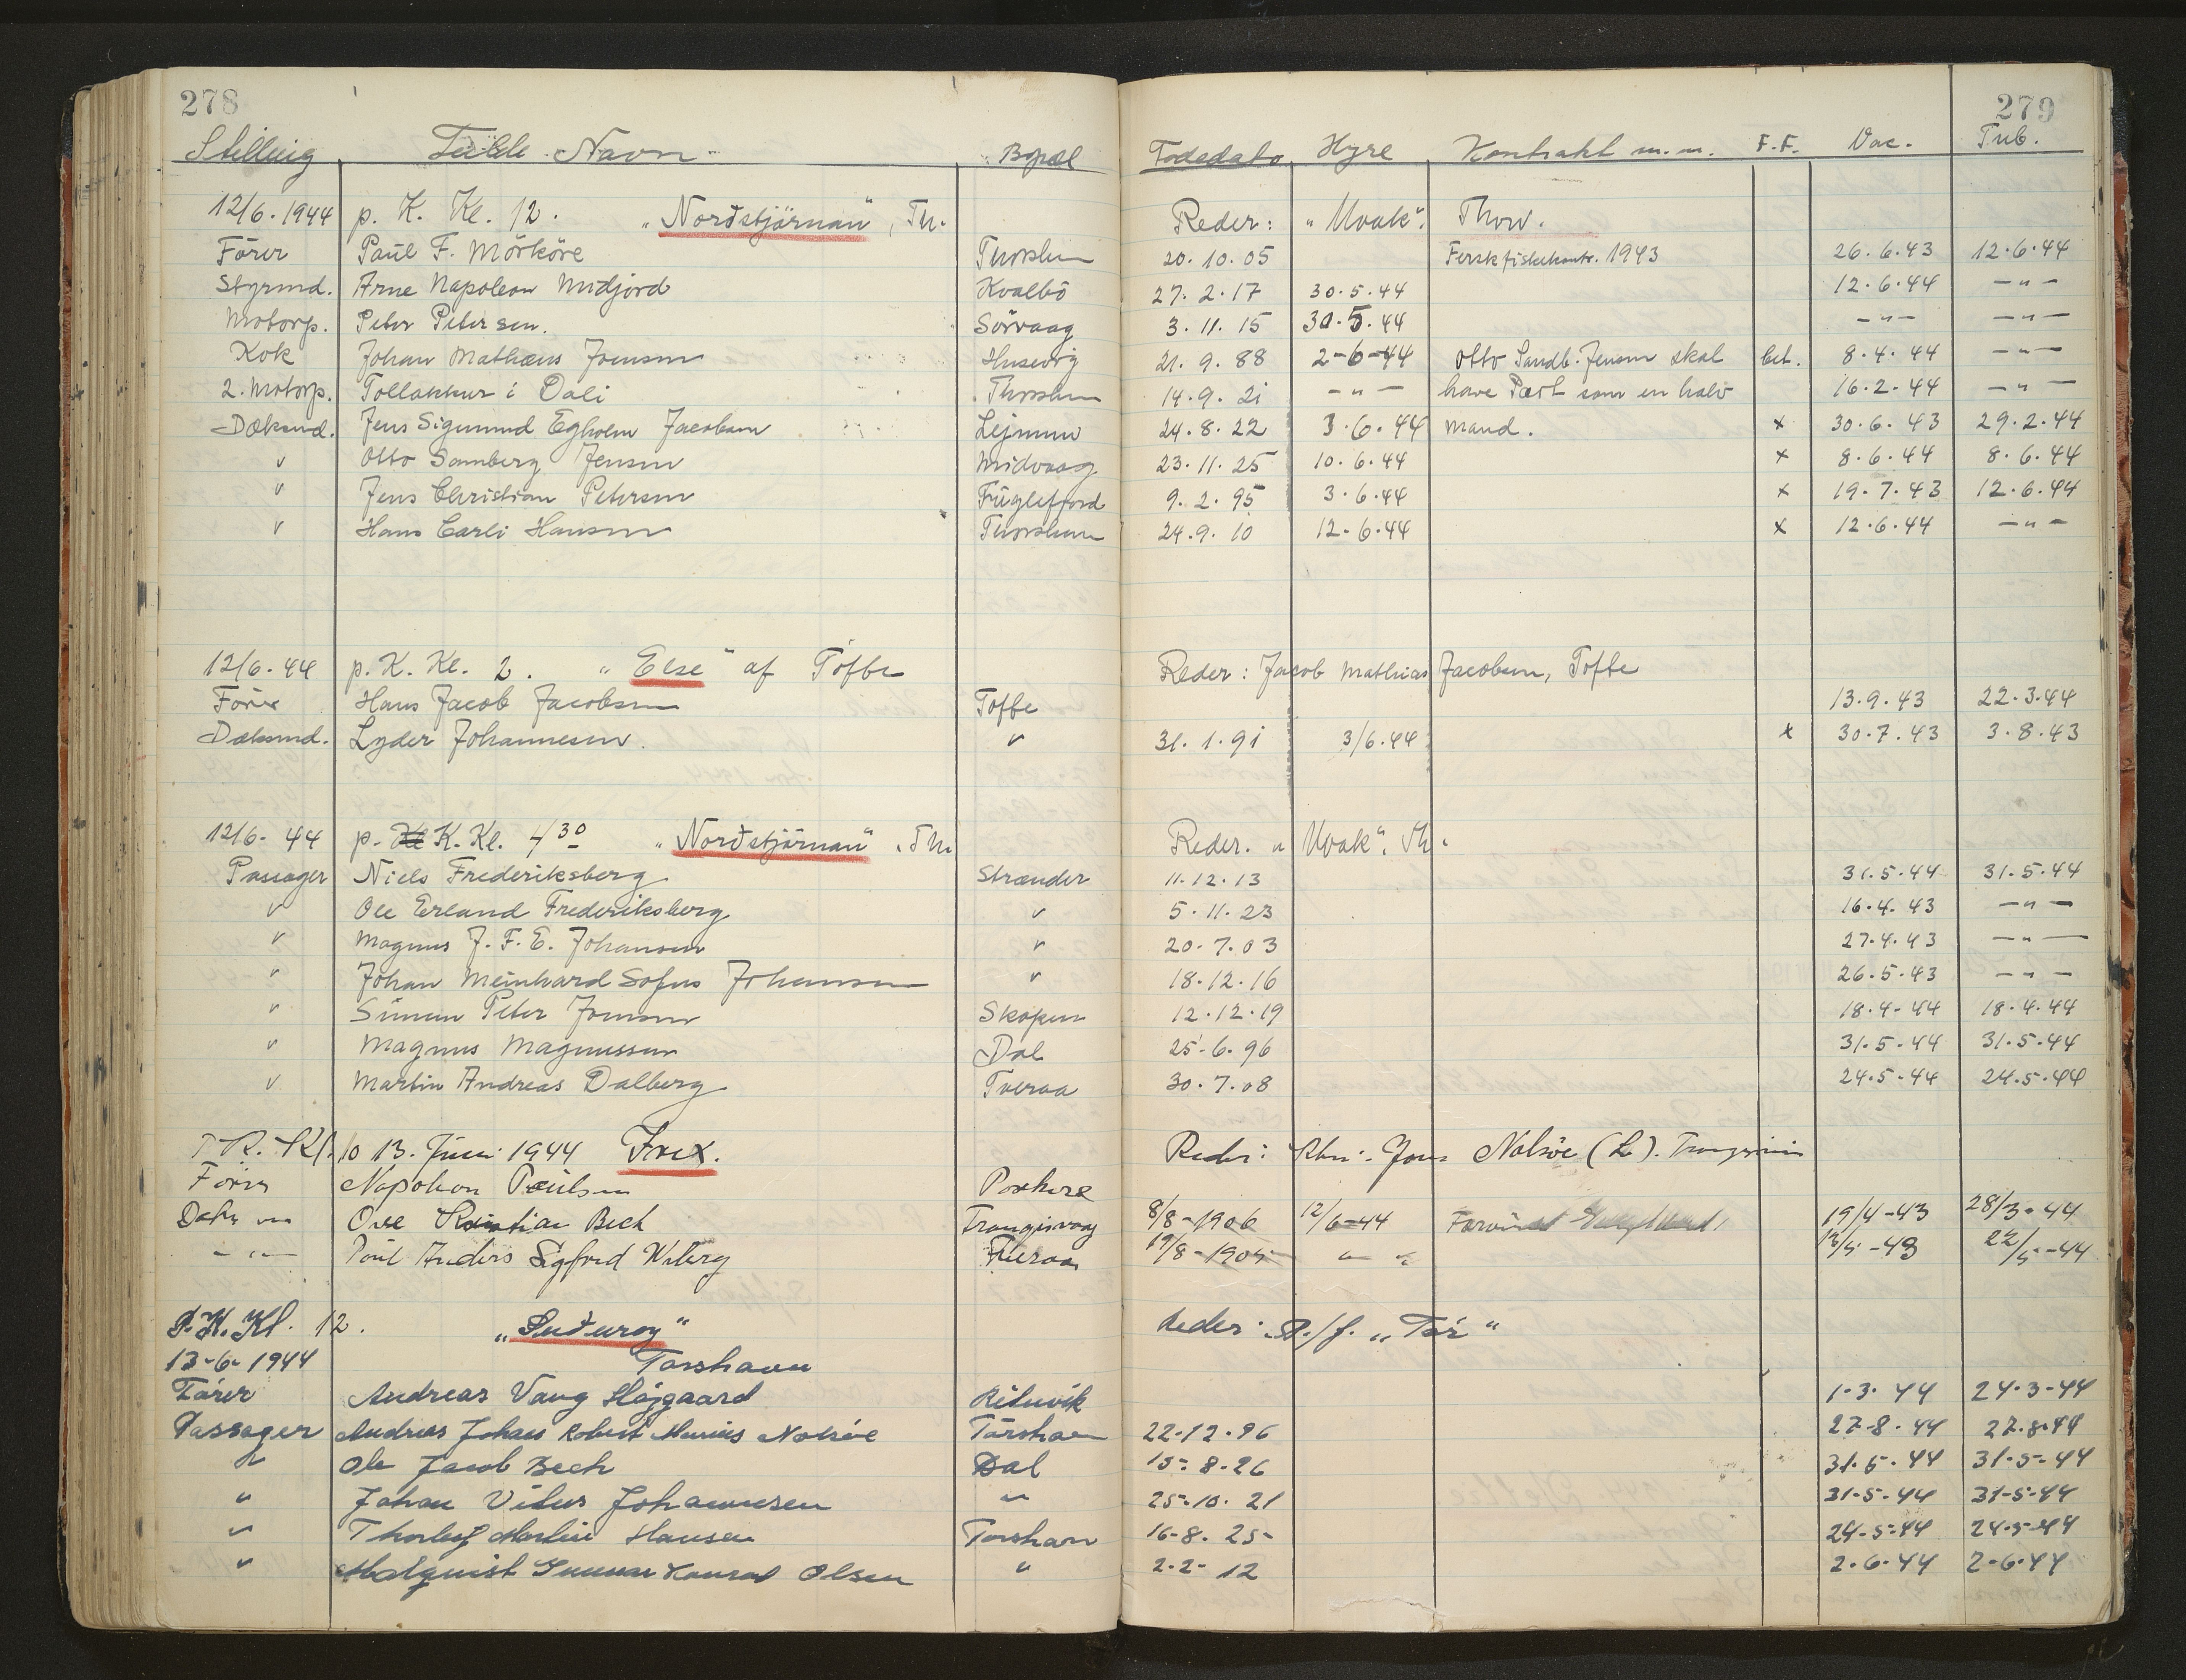 278
279
Stilling Fulde Navn Bopæl Fødedato Hyre Kontrakt m.m. F.F. Vac. Tub.
12/6.1944 p. K. Kl. 12. "Norðstjörnan", Th. Reder: "Uvak". Thorv.
Förer Paul F. Mörköre Thorshvn 20.10.05 Ferskfiskekontr. 1943 26.6.43 12.6.44
Styrmd. Arne Napoleon Midjord Kvalbö 27.2.17 30.5.44 12.6.44 -"-
Motorp. Peter Petersen. Sörvaag 3.11.15 30.5.44 -"- -"-
Kok Johan Mathæus Joensen Husevig 21.9.88 2-6-44 Otto Sandb. Jensen skal bet. 8.4.44 -"-
2. Motorp. Tollakkur í Dali Thorshvn 14.9.21 -"- have Part som en halv 16.2.44 -"-
Dæksmd. Jens Sigmund Egholm Jacobsen Lejnum 24.8.22 3.6.44 mand. x 30.6.43 29.2.44
" Otto Samberg Jensen Midvaag 23.11.25 10.6.44 x 8.6.44 8.6.44
" Jens Christian Petersen Fuglefjord 9.2.95 3.6.44 x 19.7.43 12.6.44
" Hans Carli Hansen Thorshavn 24.9.10 12-6.44 x 12.6.44 -"-
12/6.44 p. K. Kl. 2. "Else" af Tofte Reder: Jacob Mathias Jacobsen, Tofte
Förer Hans Jacob Jacobsen Tofte 13.9.43 22.3.44
Dæksmd. Lyder Johannesen. " 31.1.91 3/6.44 x 30.7.43 3.8.43
12/6-44 p. K. Kl. 4 30 "Norðstjörnan", Th Reder. "Uvak". Th.
Passager Niels Frederiksberg Strænder 11.12.13 31.5.44 31.5.44
" Ole Erland Frederiksberg " 5.11.23 16.4.43 -"-
" Magnus J. F. E. Johansen " 20.7.03 27.4.43 -"-
" Johan Meinhard Sofus Johansen " 18.12.16 26.5.43 -"-
" Simun Peter Joensen Skopun 12.12.19 18.4-44 18.4.44
" Magnus Magnussen Dal 25.6.96 31.5.44 31.5.44
" Martin Andreas Dalberg Tveraa 30.7.08 24.5.44 24.5.44
Kl. 10 13. Juni 1944 Frex. Reder: Jens Nolsöe (L).
Förer Napoleon Poulsen Porkere
Ove Kristian Bech Trangisvaag 8/8-1906 12/6-44 19/4-43 28/3-44
-"- Poul Anders Sigfred Wiberg Tveraa 19/8-1905 " " 22/5-44
P.K. Kl. 12. "Suduroy" Reder: A./f. "Tór"
13-6-1944 Torshavn
Förer Andreas Vang Höjgaard Rituvik 1-3.44 24-3-44
Passager Andreas Johan Robert Marius Nolsöe Torshavn 22-12-96 27-8-44 27.8.44
" Ole Jacob Bech Dal 15-8-26 31.5.44 31-5-44
" Johan Vitus Johannesen " 25-10.21 31-5-44 31-5-44
" Thorleif Martin Hansen Torshavn 16-8.25- 24-5-44 24-5-44
" Malquist Gunnar Konrad Olsen " 2-2-12 2.6.44 2-6-44